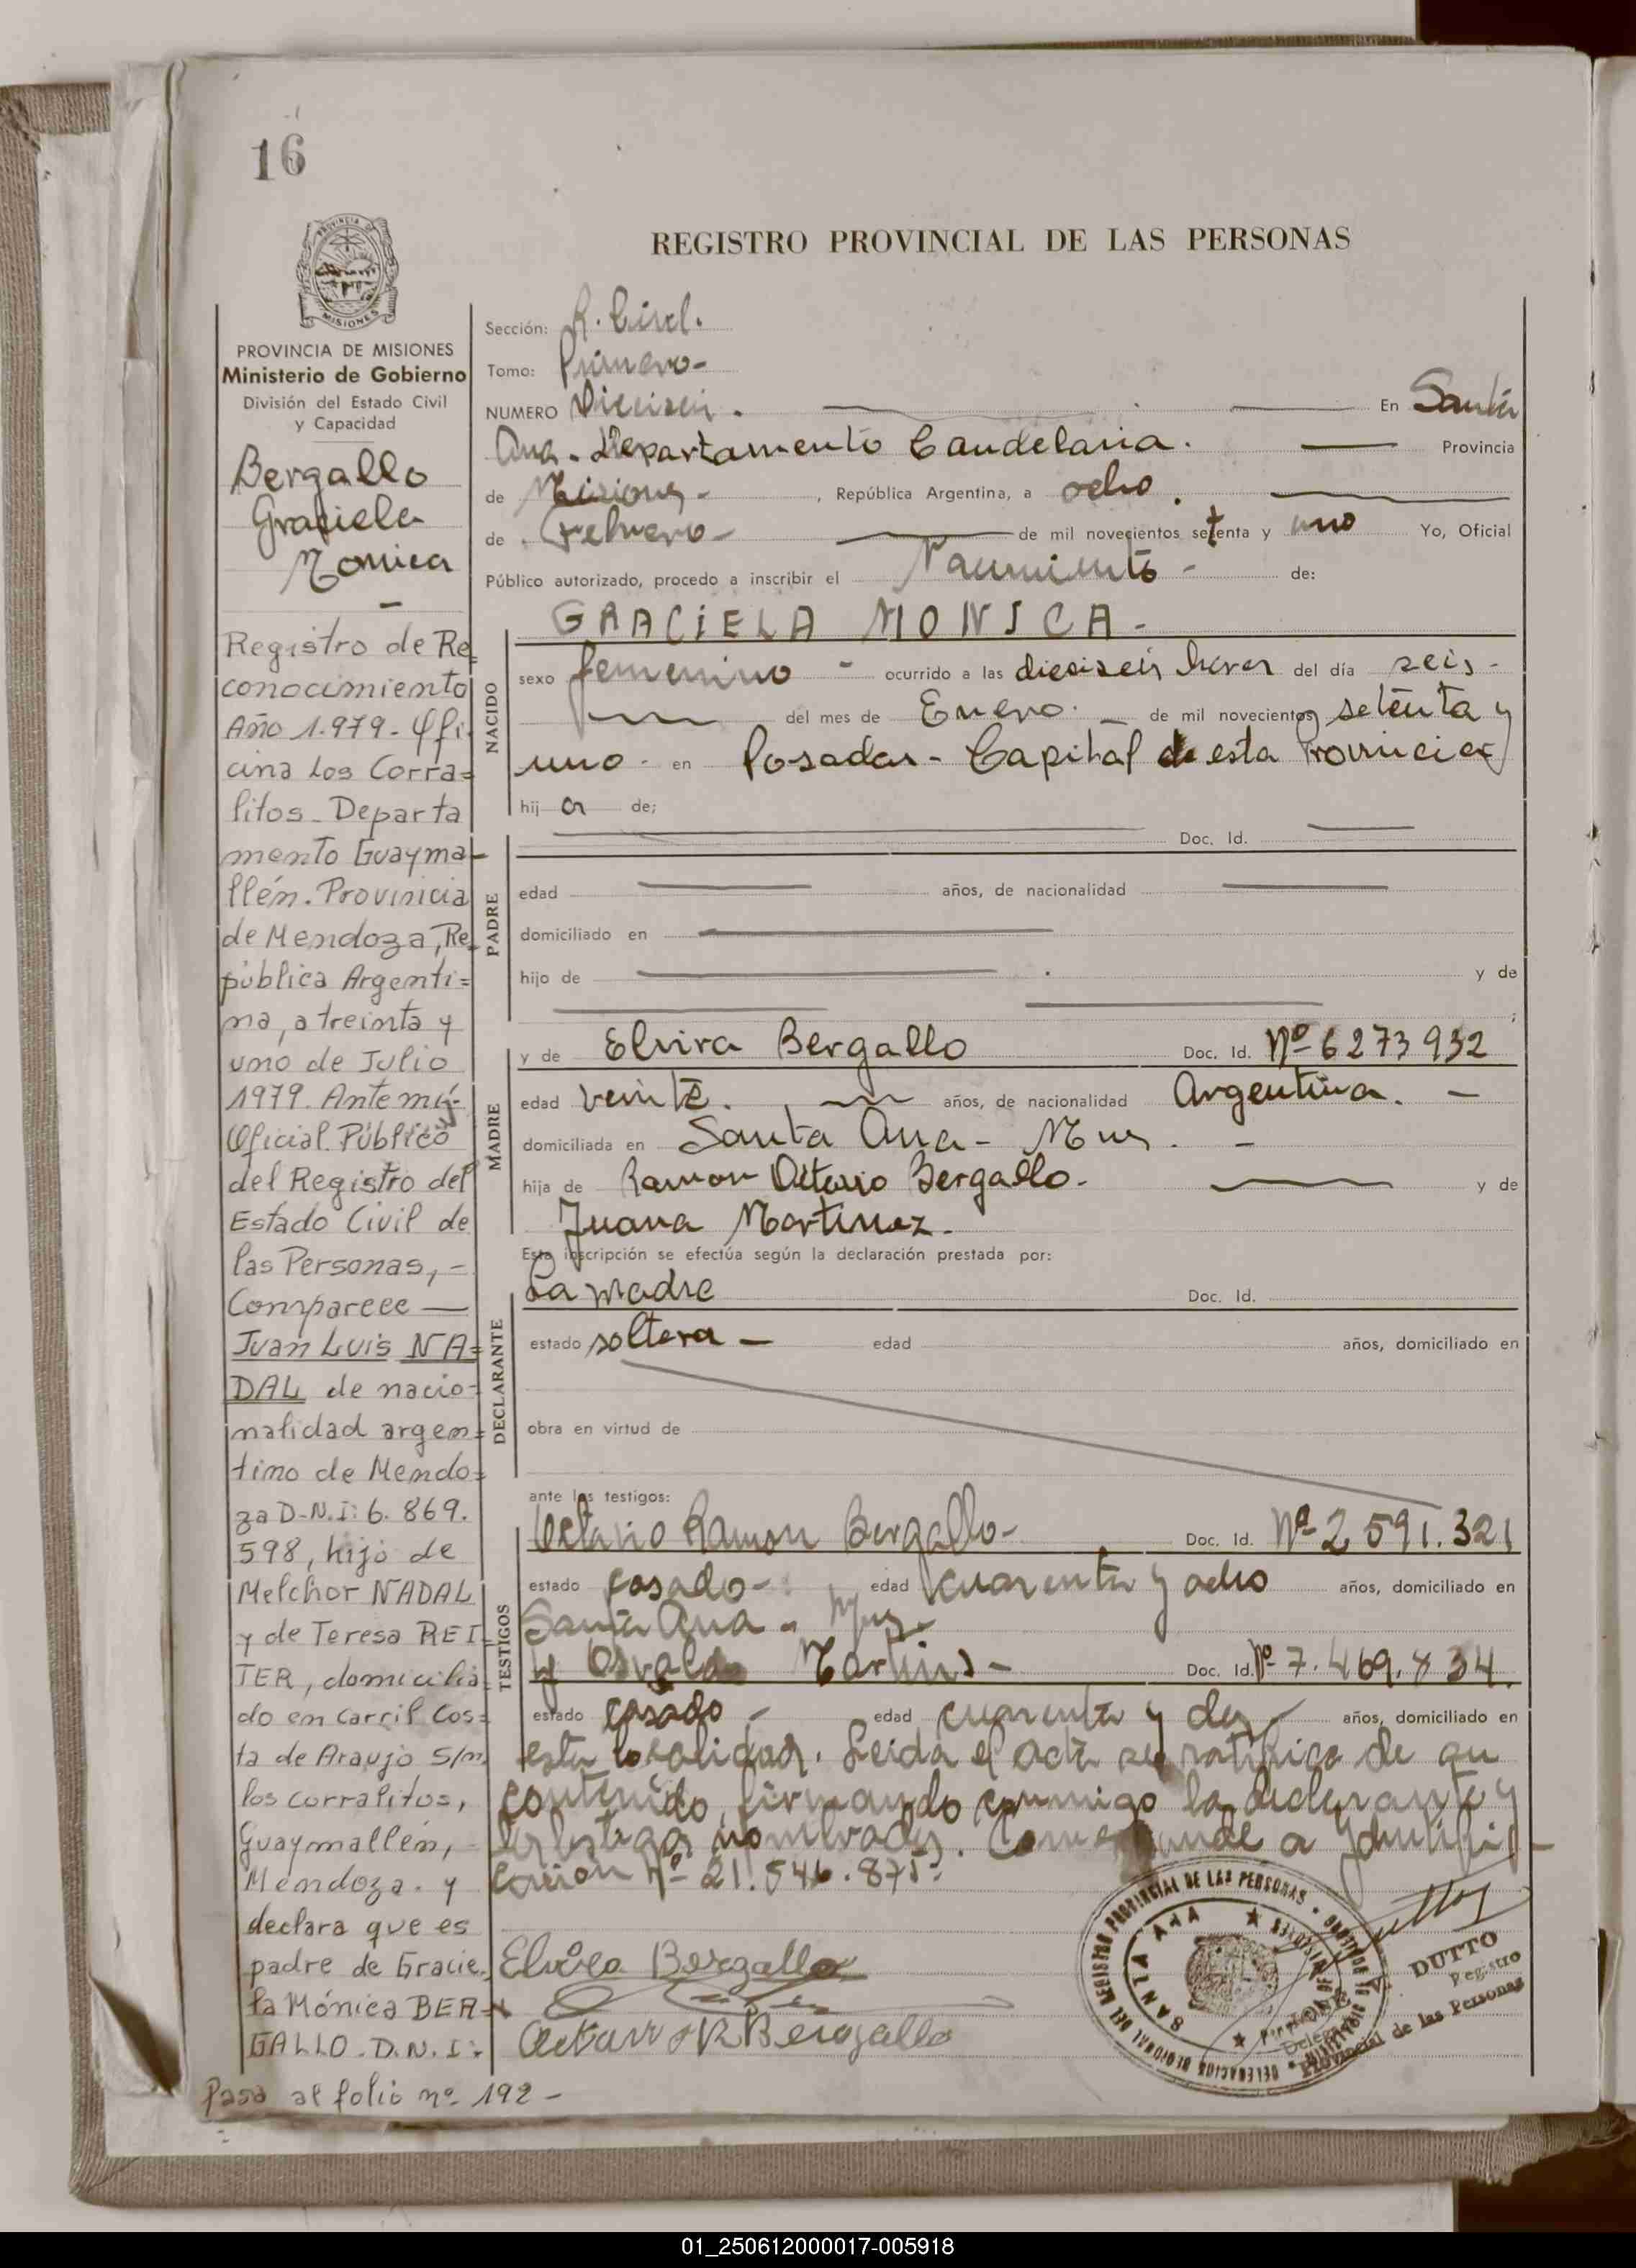 16
REGISTRO PROVINCIAL DE LAS PERSONAS
MISIONES
PROVINCIA DE MISIONES
Ministerio de Gobierno
División del Estado Civil
y Capacidad
Bergallo
Graciela
Monica
Registro de Re
conocimiento
Año 1.979- Ofi
cina Los Corra=
litos - Departa
mento Guayma-
llén. Provinicia
de Mendoza, Re
pública Argenti=
na, a treinta y
uno de Julio
1979. Ante mí.
Oficial Público
del Registro del
Estado Civil de
las Personas, -
Comparece —
Juan Luis NA=
DAL de nacio-
nalidad argen=
tino de Mendo=
za D-N.I: 6.869.
598, hijo de
Melchor NADAL
y de Teresa REI
TER, domicilia
do en Carril Cos=
ta de Araujo S/n
los corralitos,
Guaymallén, -
Mendoza. y
declara que es
padre de Gracie.
la Mónica BER=
GALLO. D.N.I:
Pasa al folio nº 192 -
Sección: R. Civil.
Tomo: Primero-
NUMERO Dieciseis. En Santa
Ana. Departamento Candelaria. Provincia
de Misiones - , República Argentina, a ocho.
de Febrero - de mil novecientos setenta y uno Yo, Oficial
Público autorizado, procedo a inscribir el Nacimiento - de:
GRACIELA MONICA -
NACIDO
sexo femenino - ocurrido a las dieciseis horas del día seis -
del mes de Enero. de mil novecientos setenta y
uno - en Posadas - Capital de esta Provincia
hij a de;
PADRE
Doc. Id.
edad años, de nacionalidad
domiciliado en
hijo de y de
MADRE
y de Elvira Bergallo Doc. Id. Nº 6273932
edad veinte. años, de nacionalidad Argentina. -
domiciliada en Santa Ana - Mnes. -
hija de Ramon Octavio Bergallo. y de
Juana Martinez.
Esta inscripción se efectúa según la declaración prestada por:
DECLARANTE
La madre Doc. Id.
estado soltera - edad años, domiciliado en
obra en virtud de
ante los testigos:
TESTIGOS
Octavio Ramon Bergallo - Doc. Id. Nº 2 591.321
estado casado - edad cuarenta y ocho años, domiciliado en
Santa Ana - Mnes.
y Osvaldo Martins - Doc. Id. Nº 7.469.834.
estado casado - edad cuarenta y dos años, domiciliado en
esta localidad. Leida el acta se ratifica de su
contenido, firmando conmigo la declarante y
los testigos nombrados. Corresponde a Identifi-
cacion Nº 21.546.875.
Elvira Bergallo
Octavio R Bergallo
DELEGACION REGIONAL DEL REGISTRO PROVINCIAL DE LAS PERSONAS
SANTA ANA
MISIONES
DUTTO
Registro
Provincial de las Personas
01_250612000017-005918